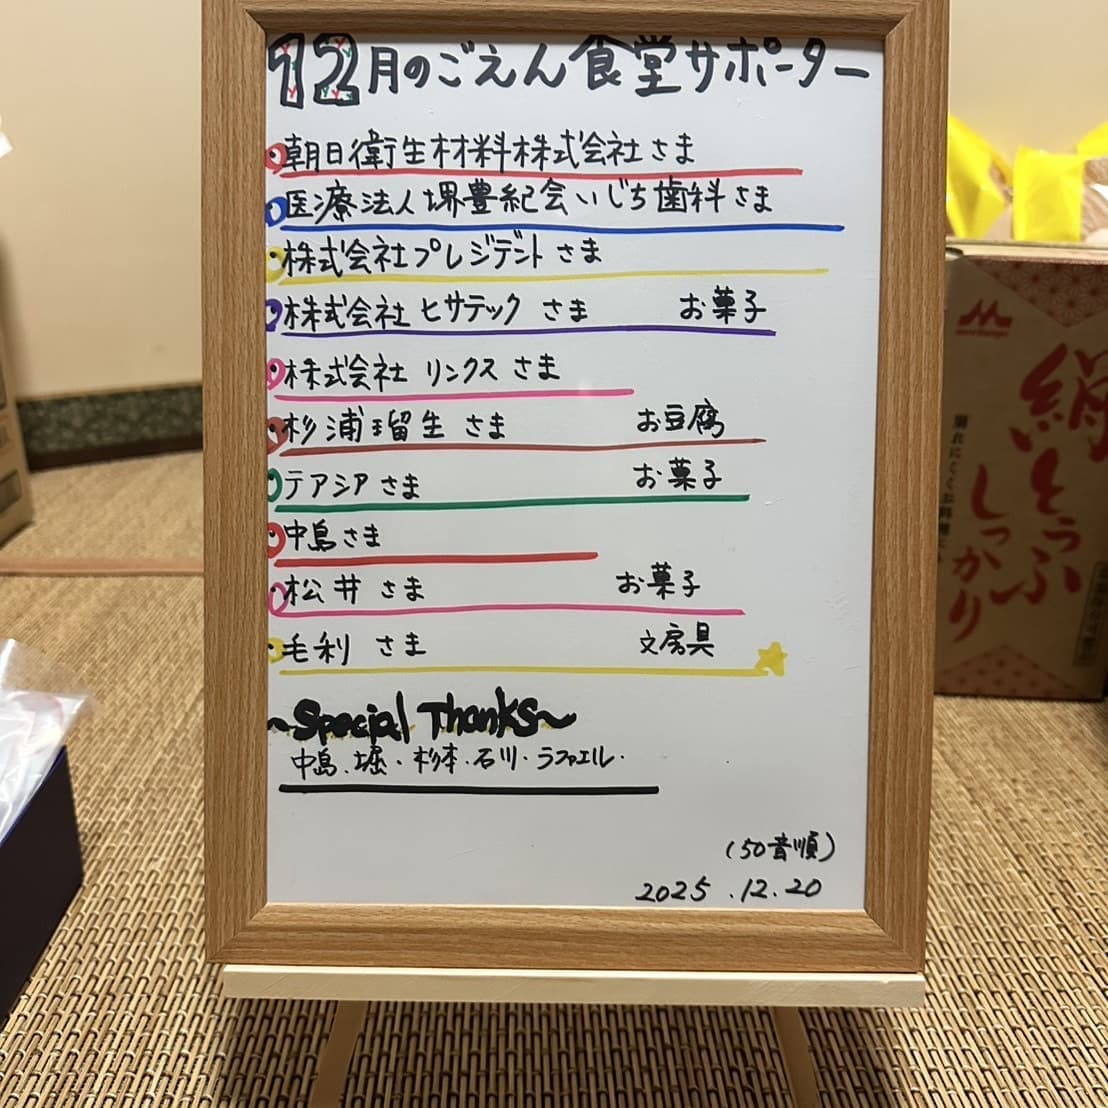 12月のごえん食堂サポーター
朝日衛生材料株式会社さま
医療法人堺豊紀会いじち歯科さま
株式会社プレジデントさま
株式会社ヒサテックさま お菓子
株式会社リンクスさま
杉浦瑠生さま お豆腐
テアシアさま お菓子
中島さま
松井さま お菓子
毛利さま 文房具
~Special Thanks~
中島・堀・杉本・石川・ラファエル・
(50音順)
2025.12.20
絹とうふ
しっかり